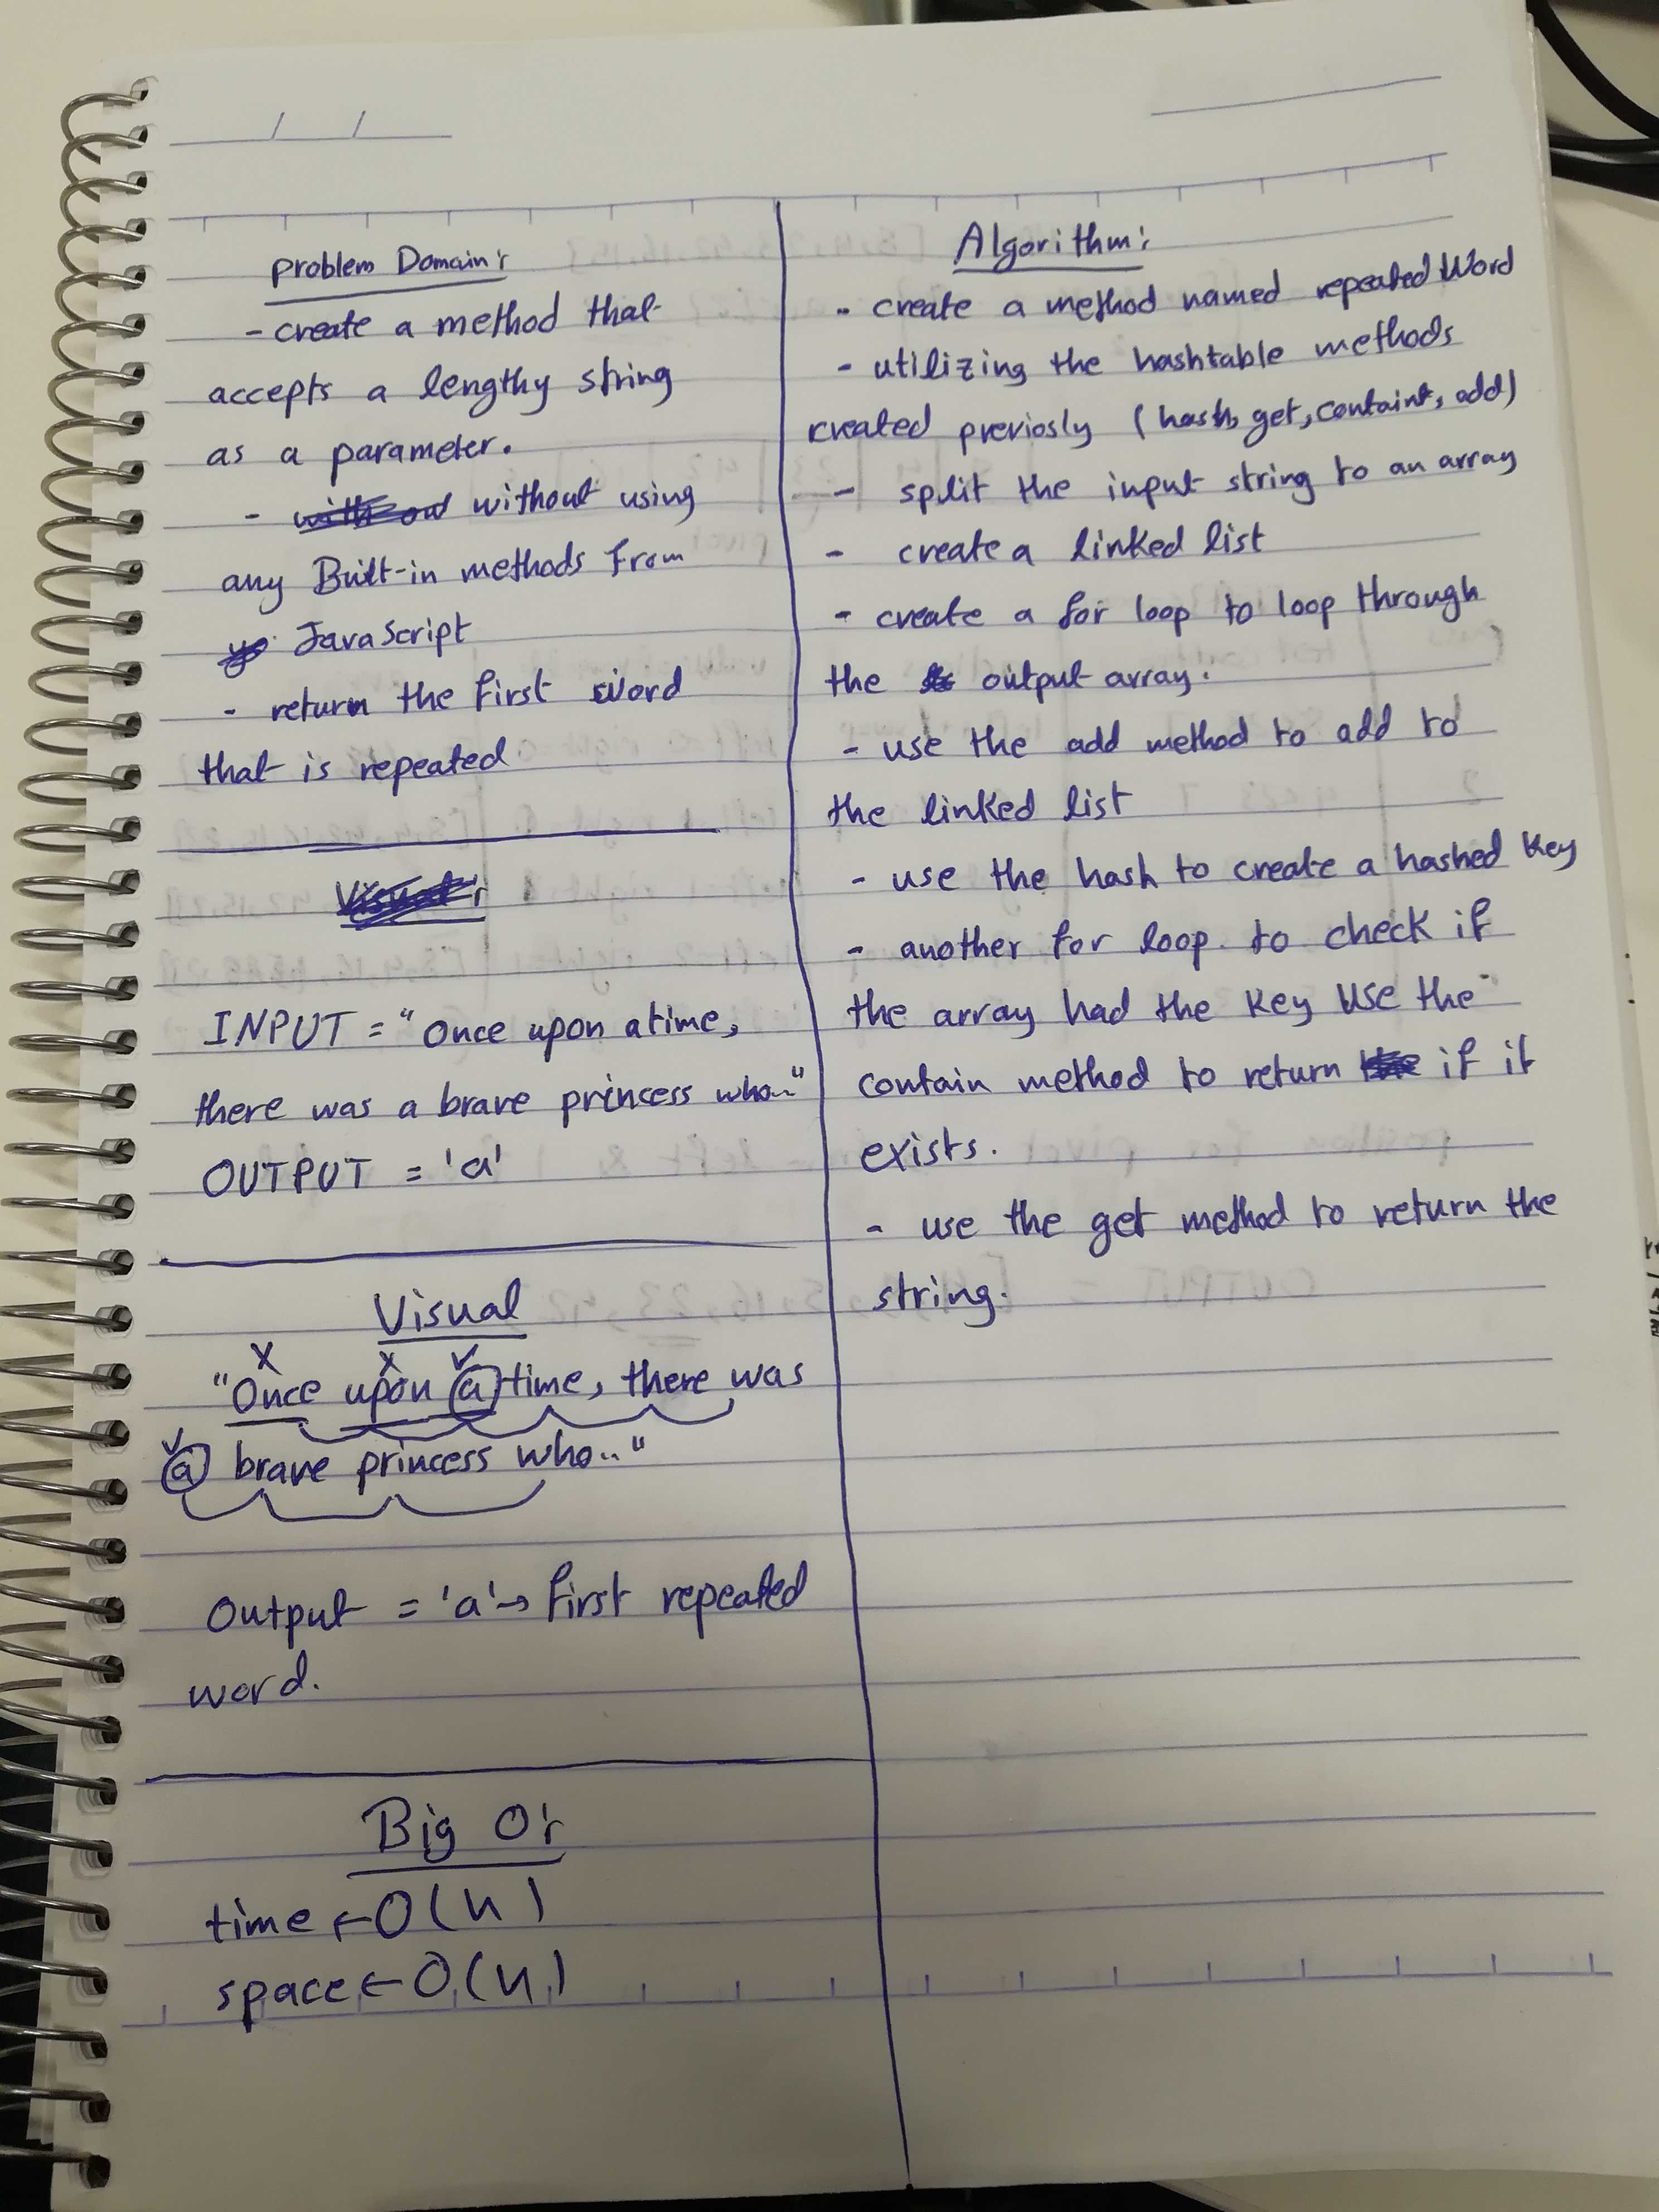 Problem Domain:
- create a method that
accepts a lengthy string
as a parameter.
- without using
any Built-in methods From
JavaScript
- return the first word
that is repeated
INPUT = "Once upon a time,
there was a brave princess who..."
OUTPUT = 'a'
Visual
x x ✓
"Once upon a time, there was
✓
a brave princess who.."
Output = 'a' → first repeated
word.
Big O:
time ← O(n)
space ← O(n)
Algorithm:
- create a method named repeatedWord
- utilizing the hashtable methods
created previosly (hash, get, containt, add)
- split the input string to an array
- create a linked list
- create a for loop to loop through
the output array.
- use the add method to add to
the linked list
- use the hash to create a hashed key
- another for loop to check if
the array had the key use the
contain method to return if it
exists.
- use the get method to return the
string.